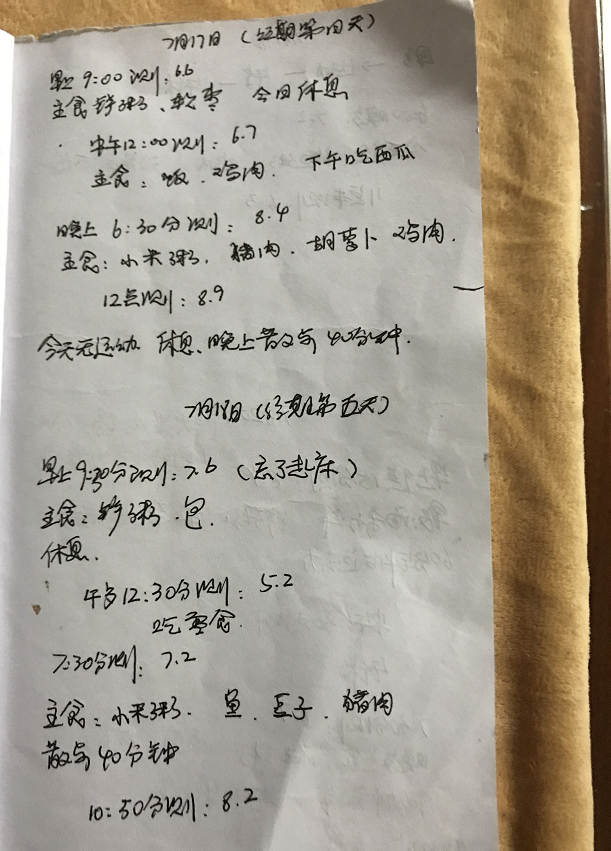 7月17日 (经期第四天)
早上 9:00 测: 6.6
主食 粥、软枣 今日休息
中午12:00测: 6.7
主食: 饭 . 鸡肉 . 下午吃西瓜
晚上 6:30分测: 8.4
主食: 小米粥, 猪肉 . 胡萝卜 鸡肉.
12点测: 8.9
今天无运动 休息、晚上散步 40分钟.
7月18日 (经期第五天)
早上 9:30分测: 7.6 (忘了起床)
主食: 粥 . 包.
休息.
中午12:30分测: 5.2
吃 食.
7:30分测: 7.2
主食: 小米粥 . 鱼 . 豆子 . 猪肉
散步 40分钟
10:50分测: 8.2